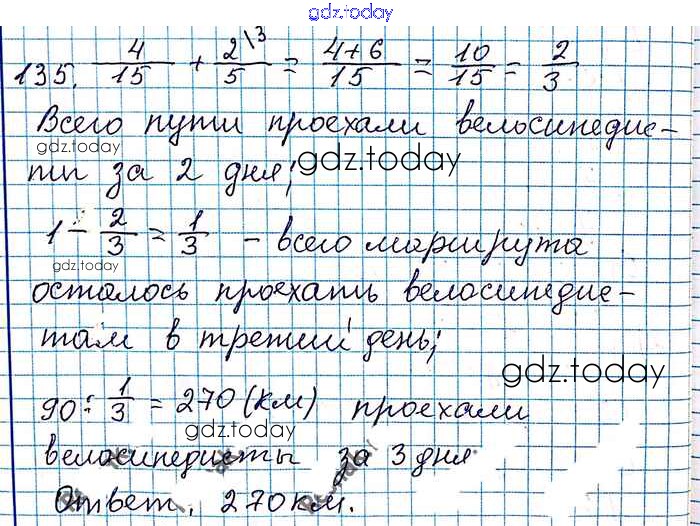 gdz.today
135. 4/15 + 2\3/5 = 4+6/15 = 10/15 = 2/3
Всего пути проехали велосипедис-
gdz.today
gdz.today
ты за 2 дня;
1 - 2/3 = 1/3 - всего маршрута
gdz.today
осталось проехать велосипедис-
там в третий день;
gdz.today
90 : 1/3 = 270 (км) проехали
gdz.today
велосипедисты за 3 дня
Ответ. 270 км.